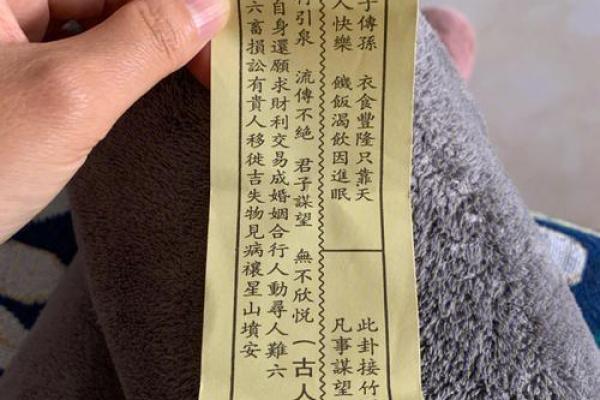 子傳孫 衣食豐隆只靠天
人快樂 饑飯渴飲因進眠
此卦接竹
凡事謀望
引泉 流傳不絕 君子謀望 無不欣悅 一古人
自身還願求財利交易成婚姻合行人動尋人難六
六畜損訟有貴人移徙吉失物見病禳星山墳安